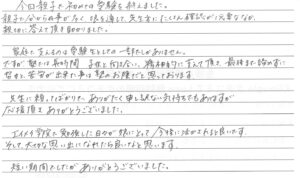 今回親子で初めての受験を終えました。
親子で分からない事が多く、娘を通して先生方にたくさん確認をしましたが、
親切に答えて頂き助かりました。
家庭で支えるのは受験生としては一部でしかありません。
大半が塾では長時間 子供と向き合い、精神的に支えて頂き、最後まで諦めずに
勉強を学習が出来た事は塾のお陰だと思っております。
先生に頼ってばかりで、ありがたく申し訳ない気持ちでもありますが
応援頂きありがとうございました。
エイメイ学院で勉強した日々が娘にとって今後に活かされると良いです。
そして、大切な思い出になれたら良いなと思います。
短い期間でしたがありがとうございました。